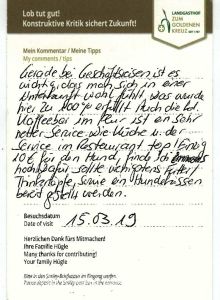 Lob tut gut!
Konstruktive Kritik sichert Zukunft!
LANDGASTHOF
ZUM
GOLDENEN
KREUZ
Mein Kommentar / Meine Tipps
My comments / tips
Gerade bei Geschäftsreisen ist es
wichtig, das man sich in einer
Unterkunft wohl fühlt, was wurde
hier zu 100% erfüllt. Auch die kl.
Kaffeebar im Flur ist ein sehr
netter Service wie Küche u. der
Service im Restaurant top! Einzig
10€ für den Hund, finde ich
hoch, dafür sollte wenigstens Futter/
Trinknäpfe, sowie ein Hundekissen
bereit gestellt werden.
Besuchsdatum
Date of visit 15.03.19
Herzlichen Dank fürs Mitmachen!
Ihre Familie Hügle
Many thanks for contributing!
Your family Hügle
Bitte in den Smiley-Briefkasten im Eingang werfen.
Please deposit in the Smiley post box in the entrance.